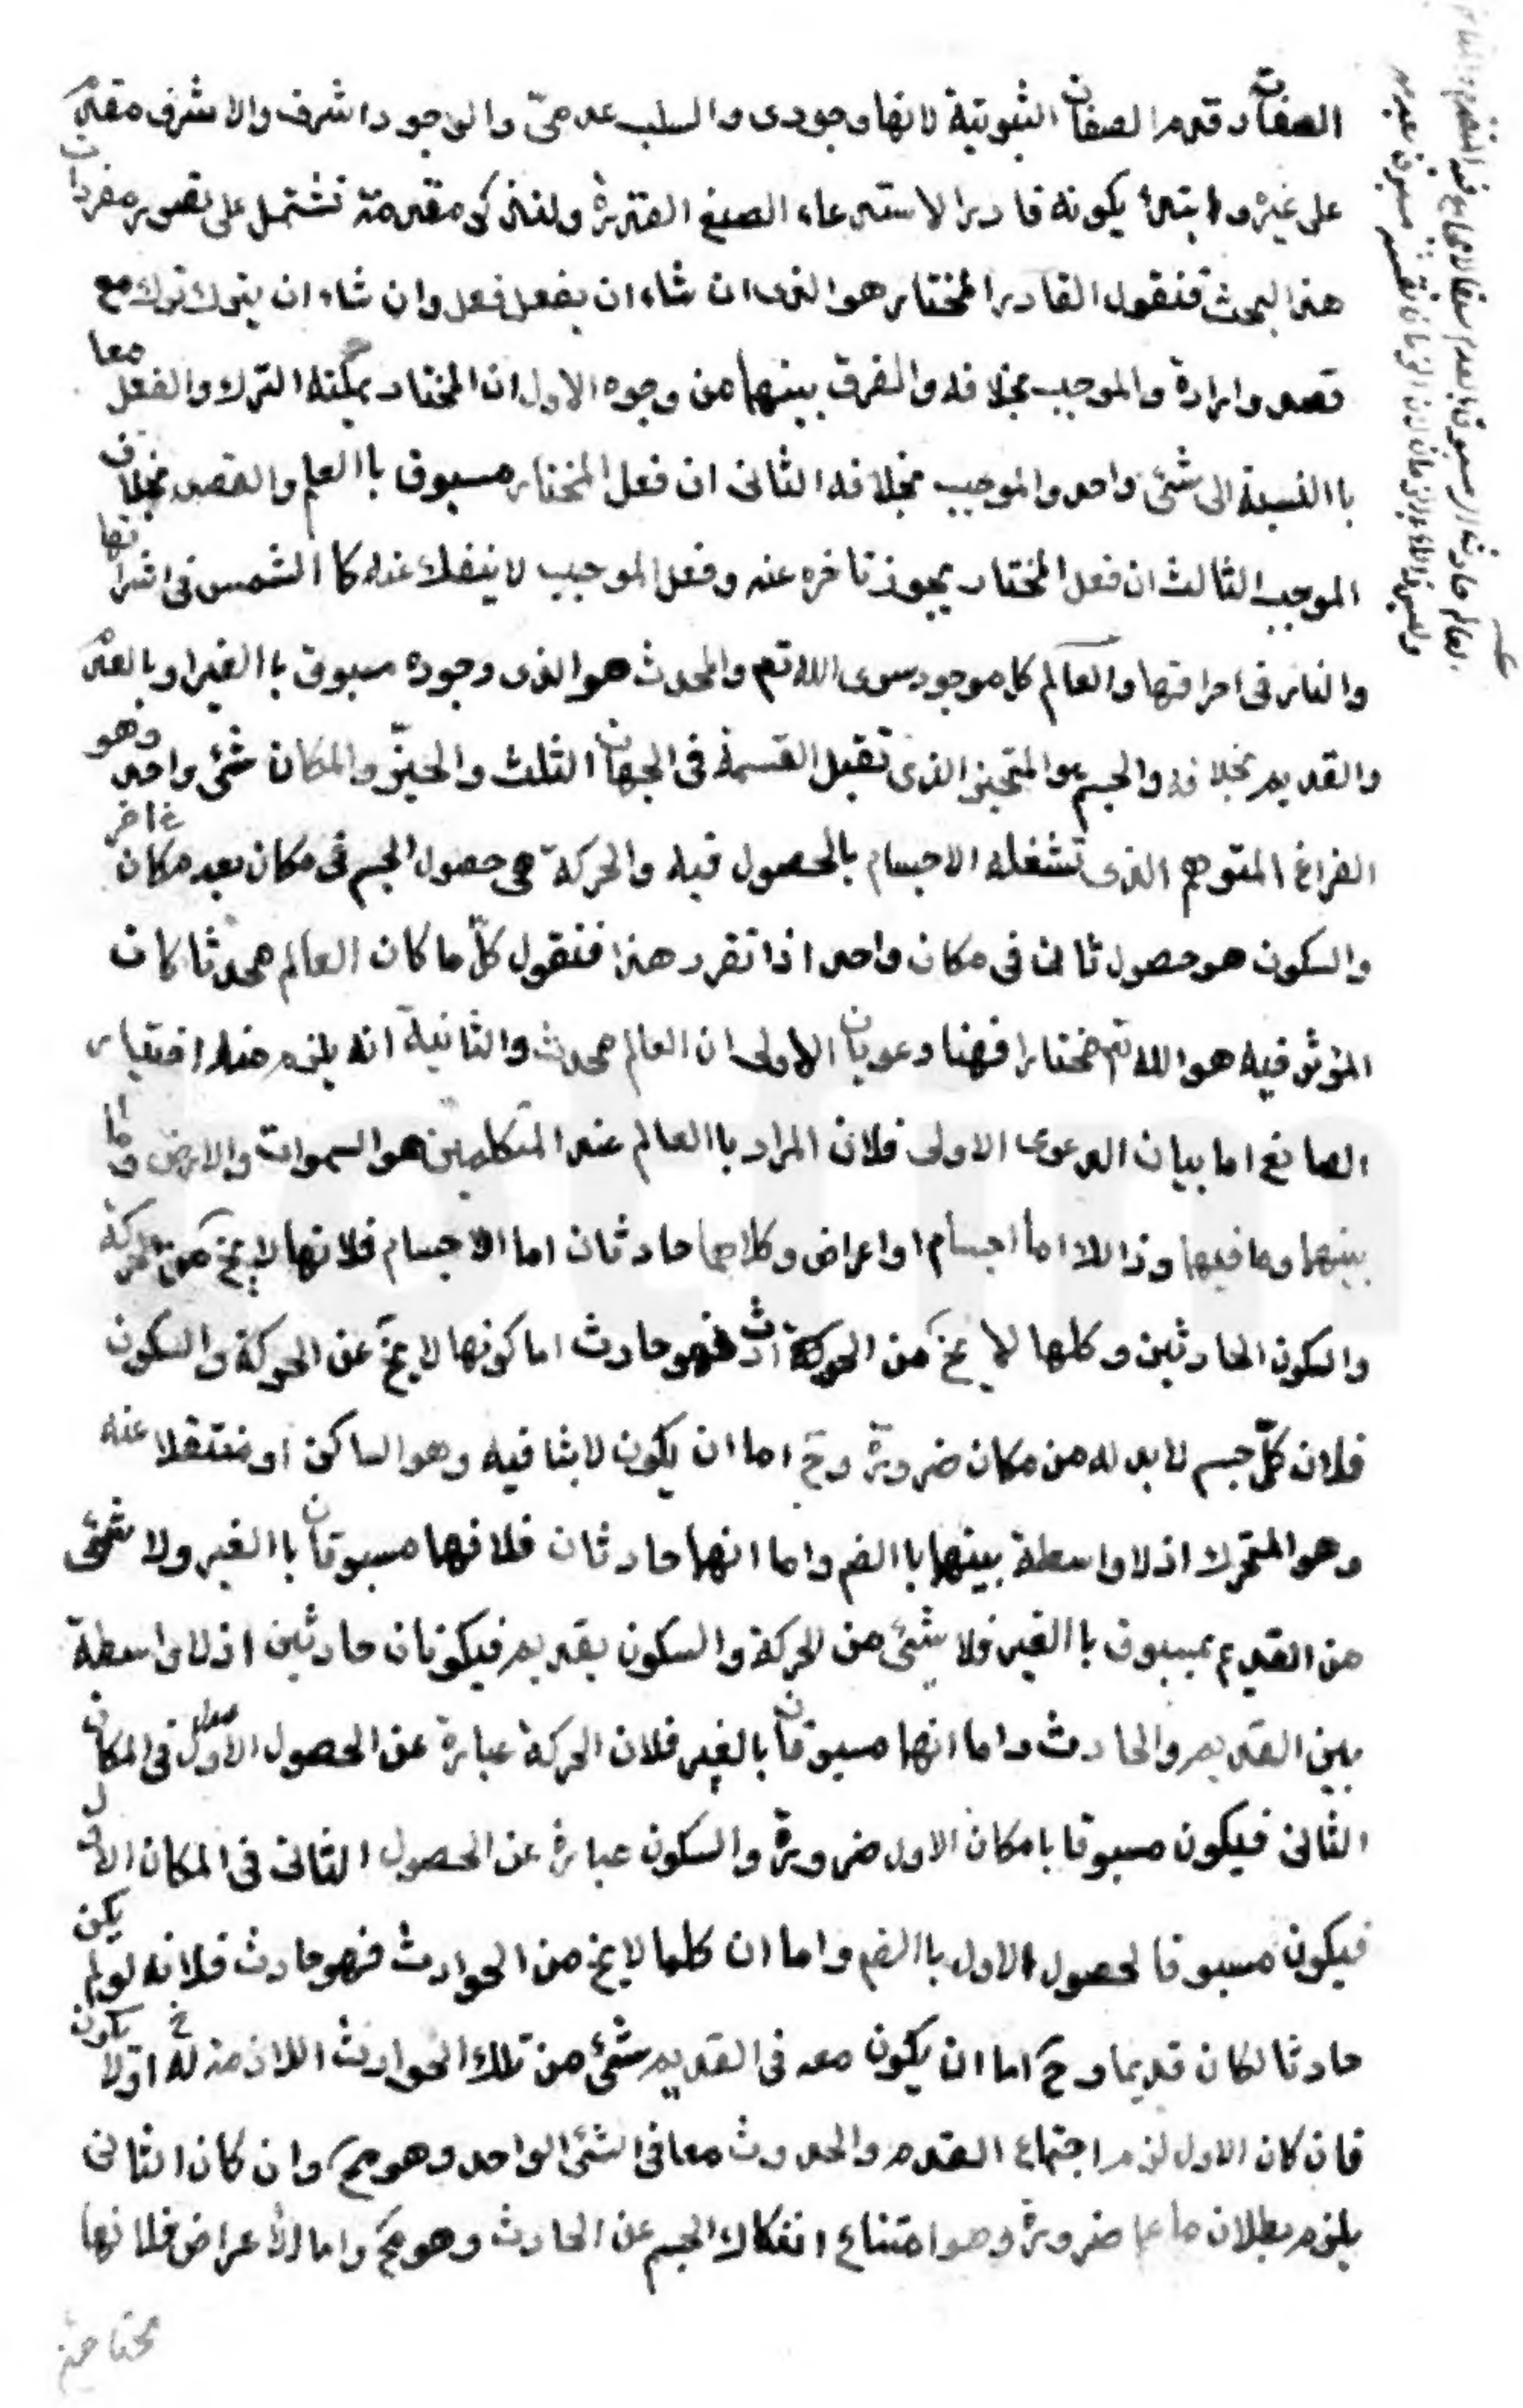 الصفات وقدم الصفات الثبوتية لانها وجودى والسلب عدمىّ والوجود اشرف والاشرف مقدم
على غيره وابتدأ بكونه قادرا لاستدعاء الصنع القدرة ولنذكر مقدمة تشتمل على تصور مفردات
هذا البحث فنقول القادر المختار هو الذى ان شاء ان يفعل فعل وان شاء ان يترك ترك مع
قصد وارادة والموجب بخلافه والفرق بينهما من وجوه الاول ان المختار يمكنه الترك والفعل معا
باالنسبة الى شئ واحد والموجب بخلافه الثانى ان فعل المختار مسبوق باالعلم والقصد بخلاف
الموجب الثالث ان فعل المختار يجوز تاخره عنه وفعل الموجب لا ينفك عنه كا الشمس فى اشراقها
والنار فى احراقها والعالم كل موجود سوى الله تعم والمحدث هو الذى وجوده مسبوق باالغير او بالعدم
والقديم بخلافه والجسم هو المتحيز الذى تقبل القسمة فى الجهات الثلث والحيّز والمكان شئ واحد وهو
الفراغ المتوهم الذى تشغله الاجسام بالحصول فيه والحركة هى حصول الجسم فى مكان بعد مكان اخر
والسكون هو حصول ثان فى مكان واحد اذا تقرر هذا فنقول كلّما كان العالم محدثا كان
المؤثر فيه هو الله تم مختارا فهنا دعويان الاولى ان العالم محدث والثانية انه يلزم منه اختيار
الصانع اما بيان الدعوى الاولى فلان المراد باالعالم عند المتكلمين هو السموات والارض وما
بينهما وما فيهما وذالك اما اجسام او اعراض وكلاهما حادثان اما الاجسام فلانها لا يخ من حركة
والسكون الحادثين وكلما لا يخ من الحوادث فهو حادث اما كونها لا يخ عن الحركة والسكون
فلان كلّ جسم لا بد له من مكان ضرورة وح اما ان يكون لابثا فيه وهو الساكن او منتقلا عنه
وهو المتحرك اذ لا واسطة بينهما باالضم واما انهما حادثان فلانهما مسبوقان باالغير ولا شئ
من القديم بمسبوق باالغير فلا شئ من الحركة والسكون بقديم فيكونان حادثين اذ لا واسطة
بين القديم والحادث واما انهما مسبوقان بالغير فلان الحركة عبارة عن الحصول الاول فى المكان
الثانى فيكون مسبوقا بامكان الاول ضرورة والسكون عبارة عن الحصول الثانى فى المكان الاول
فيكون مسبوقا لحصول الاول باالضم واما ان كلما لا يخ من الحوادث فهو حادث فلانه لو لم يكن
حادثا لكان قديما وح اما ان يكون معه فى القديم شئ من تلك الحوادث اللازمة له او لا يكون
فان كان الاول لزم اجتماع القدم والحدوث معا فى الشئ الواحد وهو مح وان كان الثانى
يلزم بطلان ما عا ضرورة وهو امتناع انفكاك الجسم عن الحادث وهو مح واما الاعراض فلانها
محتاجة